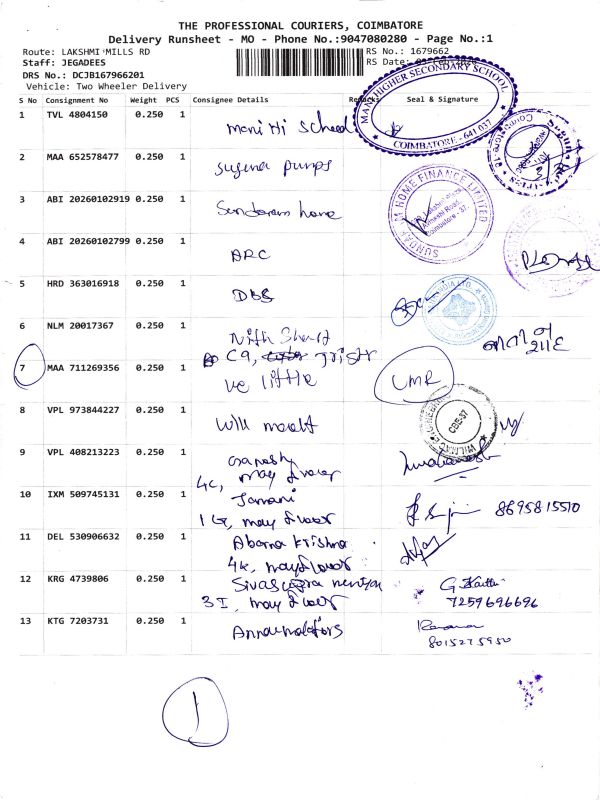 THE PROFESSIONAL COURIERS, COIMBATORE
Delivery Runsheet - MO - Phone No.:9047080280 - Page No.:1
Route: LAKSHMI MILLS RD RS No.: 1679662
Staff: JEGADEES RS Date:
DRS No.: DCJB167966201
Vehicle: Two Wheeler Delivery
S No Consignment No Weight PCS Consignee Details Seal & Signature
1 TVL 4804150 0.250 1 mani Hi School
MANI HIGHER SECONDARY SCHOOL
COIMBATORE - 641 037
2 MAA 652578477 0.250 1 suguna pumps
3 ABI 20260102919 0.250 1 Sundaram home
SUNDARAM HOME FINANCE LIMITED
Coimbatore - 37
4 ABI 20260102799 0.250 1 ARC
5 HRD 363016918 0.250 1 DBS
6 NLM 20017367 0.250 1
C9,
7 MAA 711269356 0.250 1 ve little UMR
8 VPL 973844227 0.250 1
CBE-37
9 VPL 408213223 0.250 1 Ganesh
4C, may flower
10 IXM 509745131 0.250 1 Janani 8695815510
1G, may flower
11 DEL 530906632 0.250 1 Abarna Krishna
4K, may flower
12 KRG 4739806 0.250 1 G. Karthi
3I, may flower 7259696696
13 KTG 7203731 0.250 1
8015275950
1